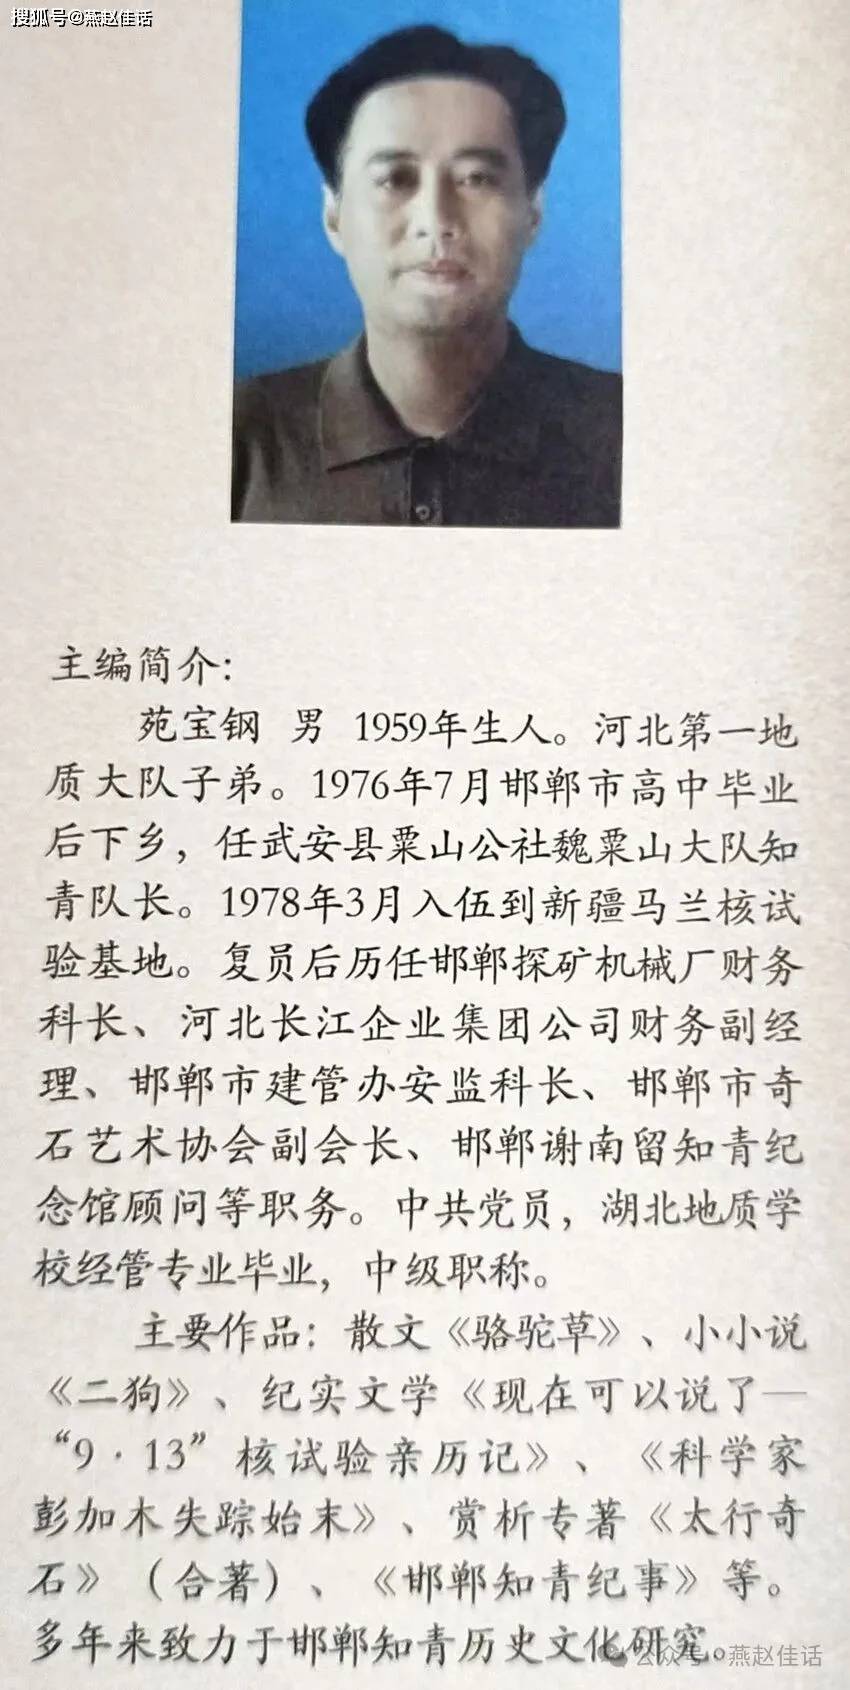 搜狐号@燕赵佳话
主编简介：
苑宝钢 男 1959年生人。河北第一地
质大队子弟。1976年7月邯郸市高中毕业
后下乡，任武安县粟山公社魏粟山大队知
青队长。1978年3月入伍到新疆马兰核试
验基地。复员后历任邯郸探矿机械厂财务
科长、河北长江企业集团公司财务副经
理、邯郸市建管办安监科长、邯郸市奇
石艺术协会副会长、邯郸谢南留知青纪
念馆顾问等职务。中共党员，湖北地质学
校经管专业毕业，中级职称。
主要作品：散文《骆驼草》、小小说
《二狗》、纪实文学《现在可以说了—
“9·13”核试验亲历记》、《科学家
彭加木失踪始末》、赏析专著《太行奇
石》（合著）、《邯郸知青纪事》等。
多年来致力于邯郸知青历史文化研究。
公众号·燕赵佳话